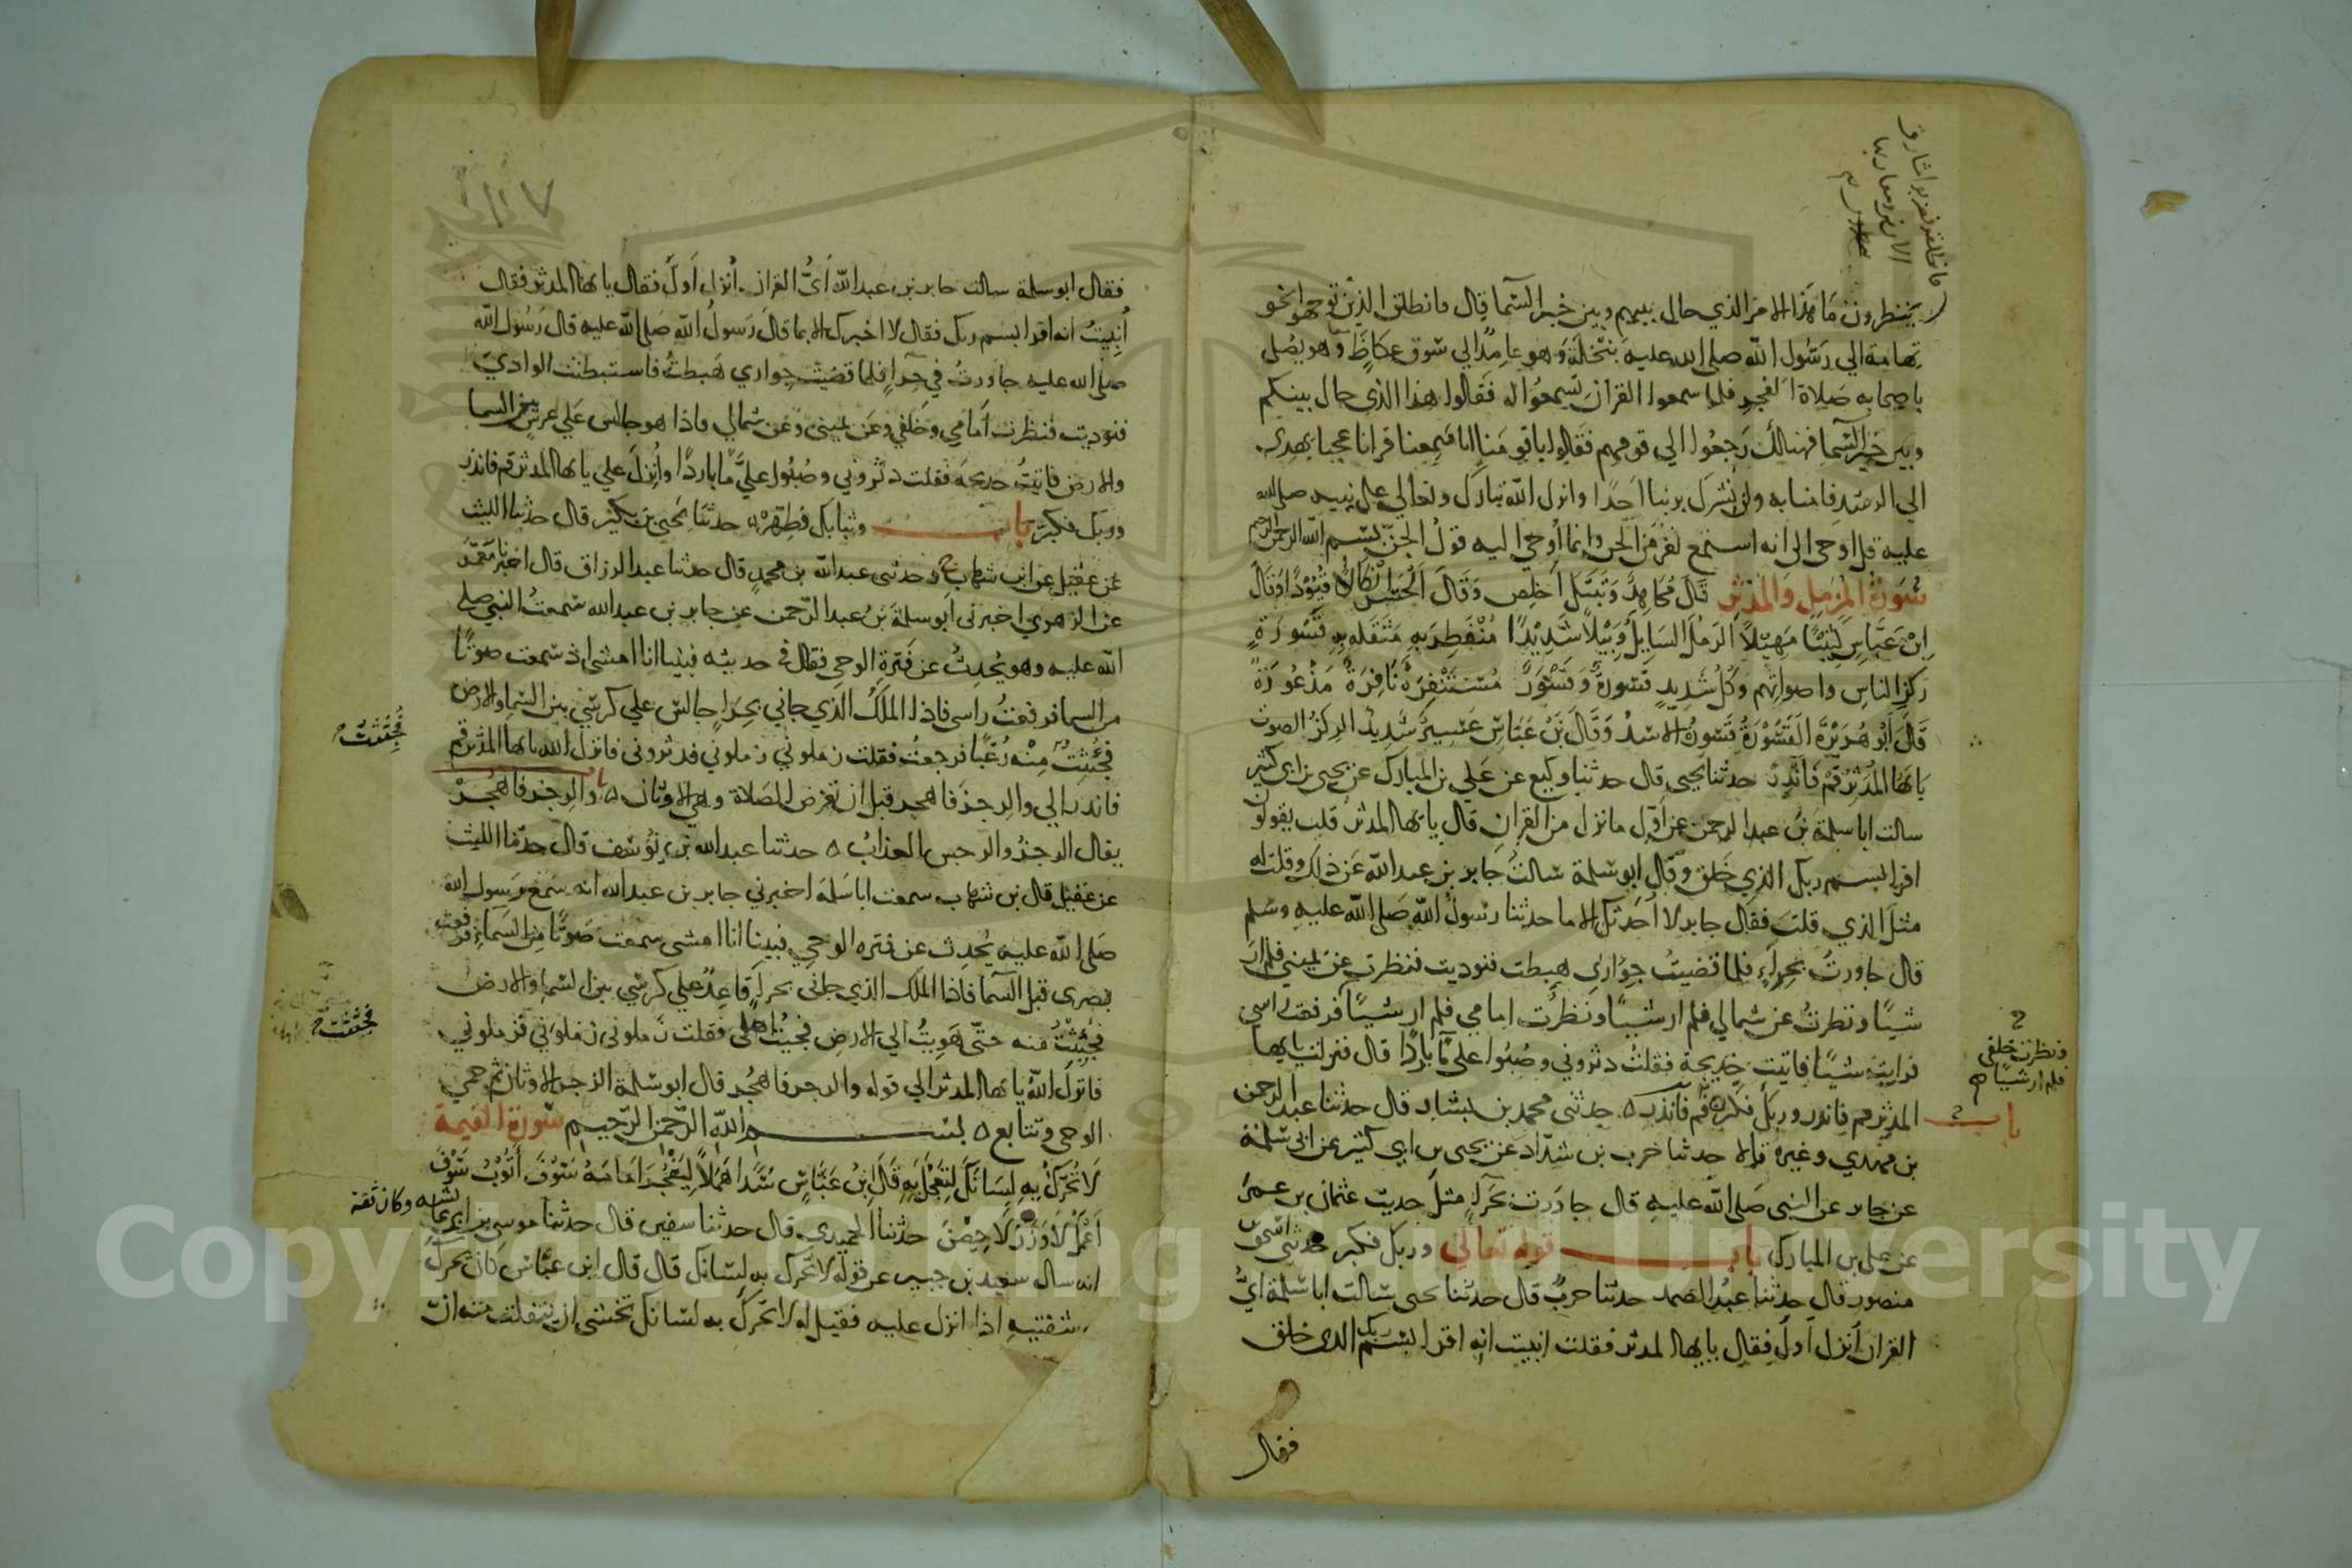 فانطلقوا فضربوا مشارق
الارض ومغاربها
ينظرون ما هذا الامر الذي حال بينهم وبين خبر السما قال فانطلق الذين توجهوا نحو
تهامة الي رسول الله صلى الله عليه بنخلة وهو عامد الي سوق عكاظ وهو يصلي
باصحابه صلاة الفجر فلما سمعوا القران تسمعوا له فقالوا هذا الذي حال بينكم
وبين خبر السما فهنالك رجعوا الي قومهم فقالوا ياقومنا انا سمعنا قرانا عجبا يهدي
الي الرشد فامنا به ولن نشرك بربنا احدا وانزل الله تبارك وتعالي على نبيه صلى الله
عليه قل اوحي الى انه استمع نفر من الجن وانما اوحي اليه قول الجن بسم الله الرحمن الرحيم
سورة المزمل والمدثر قال مجاهد وتبتل اخلص وقال الحسن انكالا قيودا وقال
ابن عباس كثيبا مهيلا الرمل السايل وبيلا شديدا منفطر به مثقله به قسورة
ركز الناس واصواتهم وكل شديد قسورة وقسور مستنفرة نافرة مذعورة
قال ابو هريرة القسورة قسور الاسد وقال بن عباس عسير شديد الركز الصوت
يايها المدثر قم فانذر حدثنا يحيى قال حدثنا وكيع عن علي بن المبارك عن يحيى بن ابي كثير
سالت ابا سلمة بن عبد الرحمن عن اول ما نزل من القران قال يايها المدثر قلت يقولون
اقرا بسم ربك الذي خلق وقال ابو سلمة سالت جابر بن عبد الله عن ذلك وقلت له
مثل الذي قلت فقال جابر لا احدثك الا ما حدثنا رسول الله صلى الله عليه وسلم
قال جاورت بحراء فلما قضيت جواري هبطت فنوديت فنظرت عن يميني فلم ار
شيئا ونظرت عن شمالي فلم ار شيئا ونظرت امامي فلم ار شيئا فرفعت راسي
ونظرت خلفي
فلم ار شيئا
فرايت شيئا فاتيت خديجة فقلت دثروني وصبوا على ما باردا قال فنزلت يايها
المدثر قم فانذر وربك فكبر باب قم فانذر حدثني محمد بن بشار قال حدثنا عبد الرحمن
بن مهدي وغيره قالا حدثنا حرب بن شداد عن يحيى بن ابي كثير عن ابي سلمة
عن جابر عن النبي صلى الله عليه قال جاورت بحراء مثل حديث عثمان بن عمر
عن علي بن المبارك باب قوله تعالي وربك فكبر حدثني اسحق
منصور قال حدثنا عبد الصمد حدثنا حرب قال حدثنا يحيى سالت ابا سلمة اي
القران انزل اول فقال يايها المدثر فقلت انبيت انه اقرا بسم ربك الذي خلق
فقال
فقال ابو سلمة سالت جابر بن عبد الله اي القران انزل اول فقال يايها المدثر فقال
انبيت انه اقرا بسم ربك فقال لا اخبرك الا بما قال رسول الله صلى الله عليه قال رسول الله
صلى الله عليه جاورت في حرا فلما قضيت جواري هبطت فاستبطنت الوادي
فنوديت فنظرت امامي وخلفي وعن يميني وعن شمالي فاذا هو جالس علي عرش بين السما
والارض فاتيت خديجة فقلت دثروني وصبوا علي ما باردا وانزل علي يايها المدثر قم فانذر
وربك فكبر باب وثيابك فطهر حدثنا يحيى بن بكير قال حدثنا الليث
عن عقيل عن ابن شهاب ح وحدثني عبد الله بن محمد قال حدثنا عبد الرزاق قال اخبرنا معمر
عن الزهري اخبرني ابو سلمة بن عبد الرحمن عن جابر بن عبد الله سمعت النبي صلى
الله عليه وهو يحدث عن فترة الوحي فقال في حديثه فبينا انا امشي اذ سمعت صوتا
من السما فرفعت راسي فاذا الملك الذي جاني بحراء جالس علي كرسي بين السما والارض
فجئثت منه رعبا فرجعت فقلت زملوني زملوني فدثروني فانزل الله يايها المدثر قم
فجثثت
فانذر الي والرجز فاهجر قبل ان تفرض الصلاة وهي الاوثان باب والرجز فاهجر
يقال الرجز والرجس العذاب حدثنا عبد الله بن يوسف قال حدثنا الليث
عن عقيل قال بن شهاب سمعت ابا سلمة اخبرني جابر بن عبد الله انه سمع رسول الله
صلى الله عليه يحدث عن فتره الوحي فبينا انا امشي سمعت صوتا من السماء فرفعت
بصري قبل السما فاذا الملك الذي جاني بحراء قاعد علي كرسي بين السما والارض
فجئثت منه حتى هويت الي الارض فجيت اهلي فقلت زملوني زملوني فزملوني
فجثثت
فانزل الله يايها المدثر الي قوله والرجز فاهجر قال ابو سلمة الرجز الاوثان ثم حمي
الوحي وتتابع بسم الله الرحمن الرحيم سورة القيمة
لا تحرك به لسانك لتعجل به قال ابن عباس سدا هملا ليفجر امامه سوف اتوب سوف
اعمل لا وزر لا حصن حدثنا الحميدي قال حدثنا سفين قال حدثنا موسى بن ابي عايشه وكان ثقة
انه سال سعيد بن جبير عن قوله لا تحرك به لسانك قال قال ابن عباس كان يحرك
شفتيه اذا انزل عليه فقيل له لا تحرك به لسانك تخشى ان ينفلت منه ان
Copyright © King Saud University